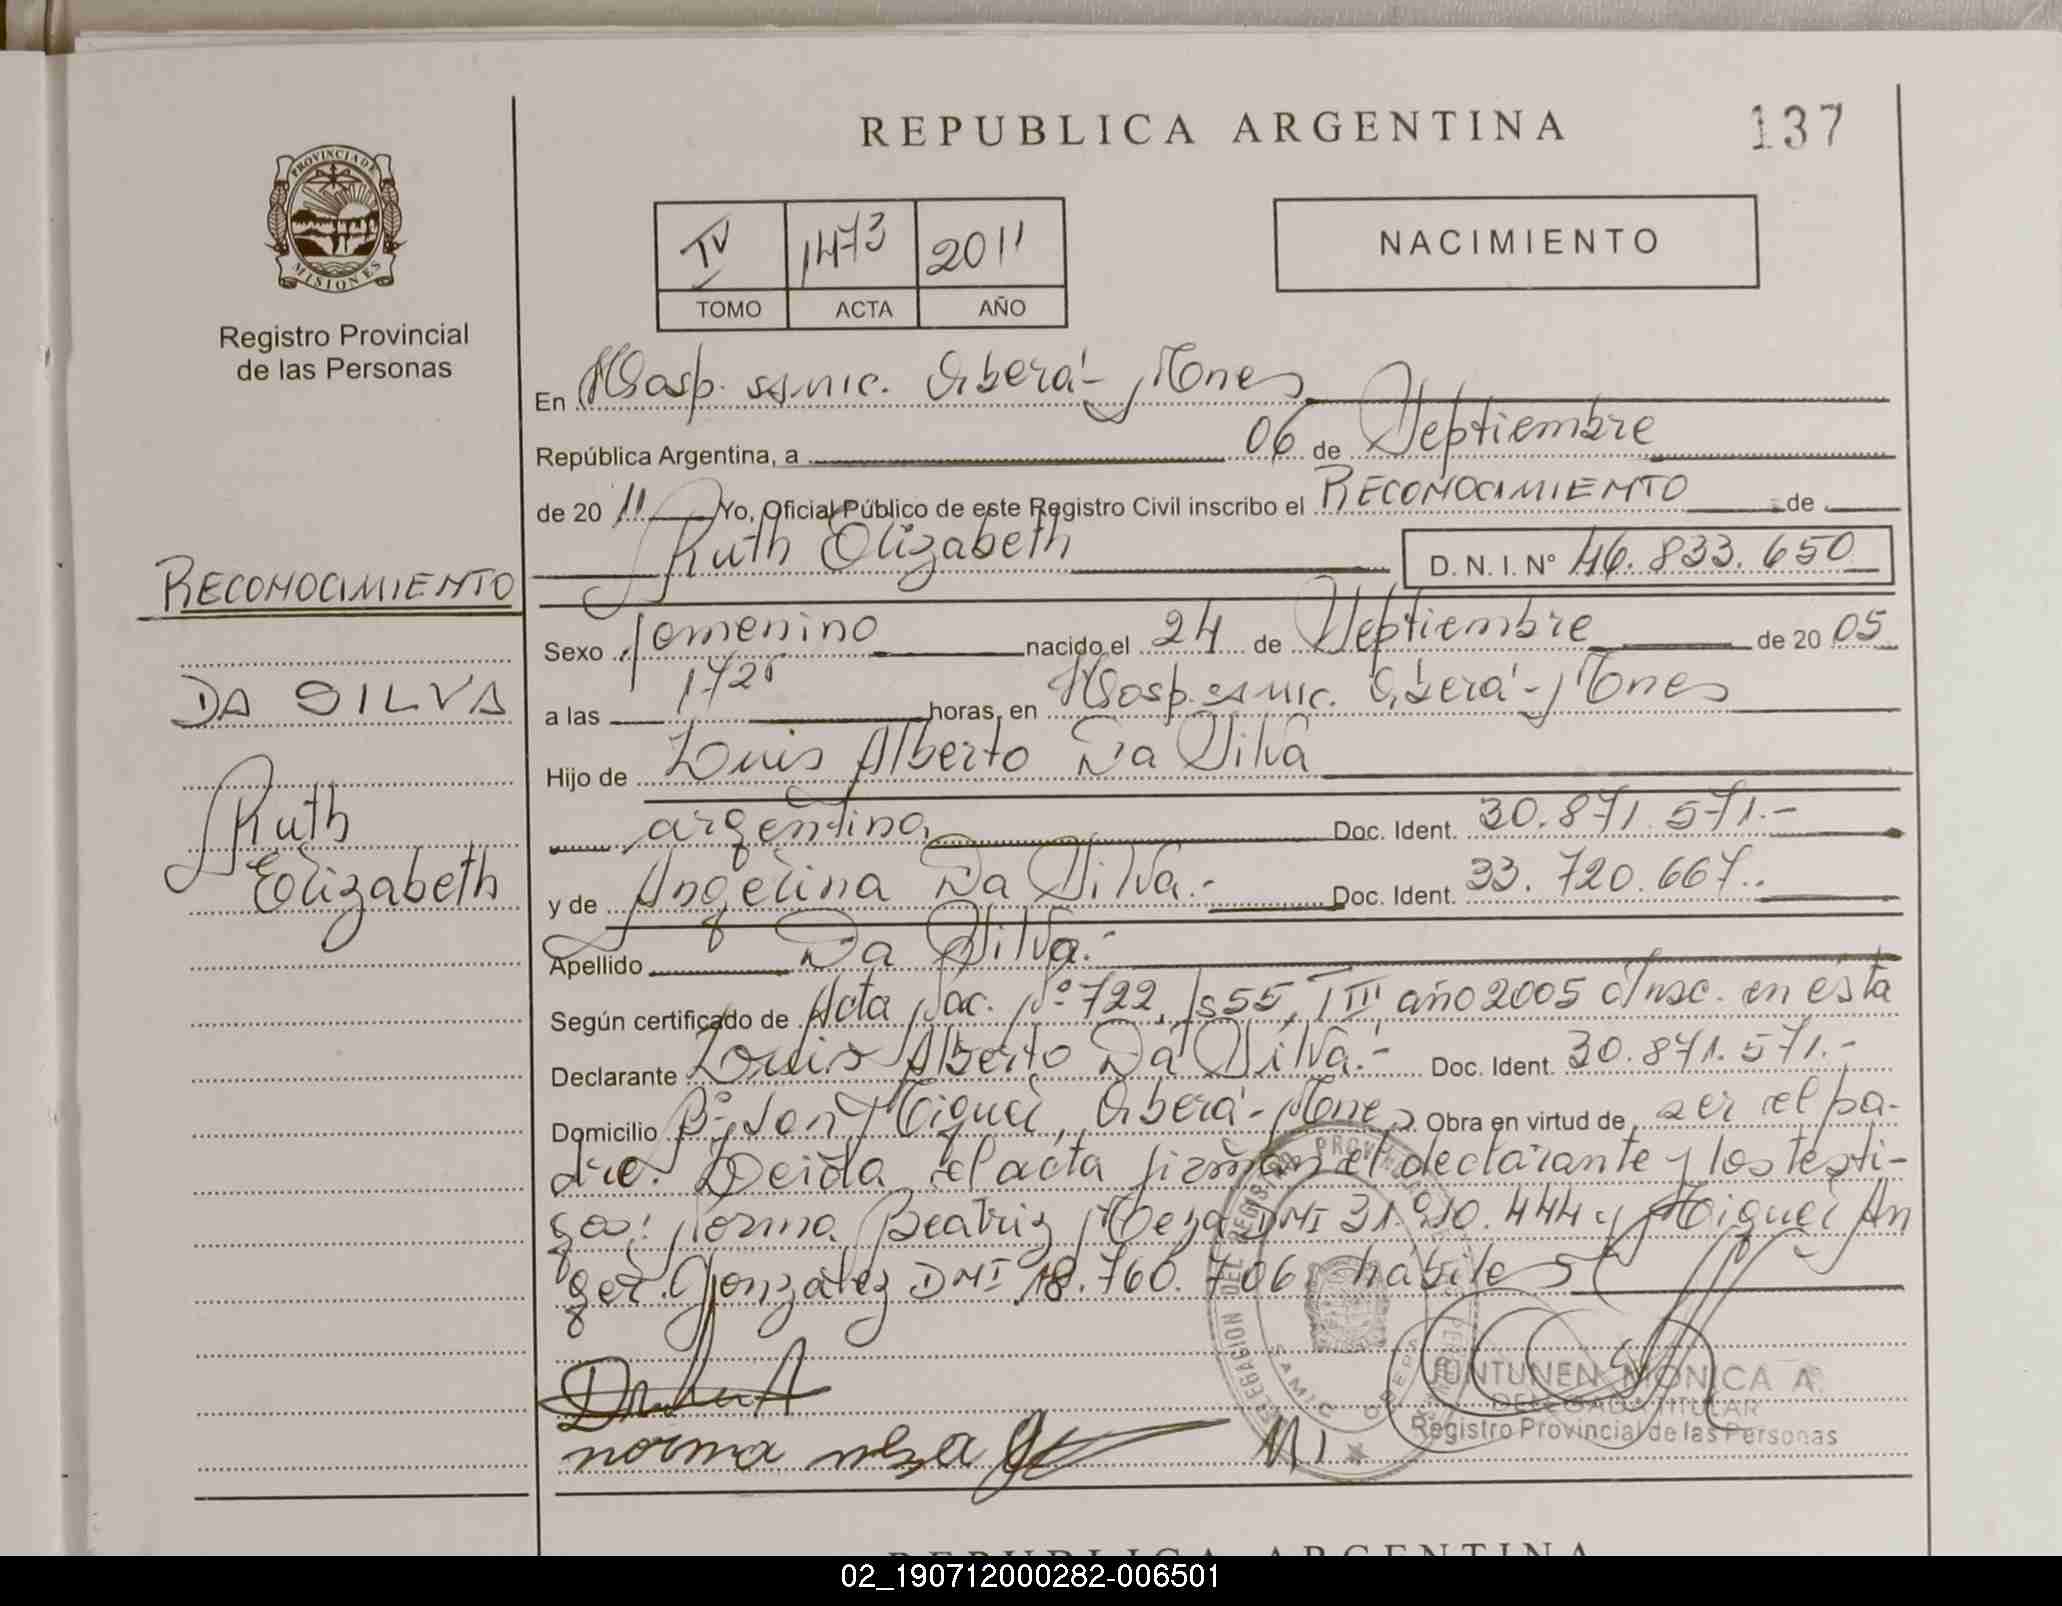 REPUBLICA ARGENTINA
137
PROVINCIA DE
MISIONES
Registro Provincial
de las Personas
IV 1473 2011
TOMO ACTA AÑO
NACIMIENTO
En Hosp. ssmic. Oberá - Mnes
República Argentina, a 06 de Septiembre
de 20 11 Yo, Oficial Público de este Registro Civil inscribo el RECONOCIMIENTO de
Ruth Elizabeth D. N. I. Nº 46.833.650
RECONOCIMIENTO
DA SILVA
Ruth
Elizabeth
Sexo femenino nacido el 24 de Septiembre de 20 05
a las 1725 horas, en Hosp. ssmic. Oberá - Mnes
Hijo de Luis Alberto Da Silva
argentino, Doc. Ident. 30.871.571.-
y de Angelina Da Silva.- Doc. Ident. 33.720.667.-
Apellido Da Silva.-
Según certificado de Acta Nac. Nº 722, Fs 55, T III, año 2005 Insc. en esta
Declarante Luis Alberto Da Silva.- Doc. Ident. 30.871.571.-
Domicilio Bº San Miguel, Oberá - Mnes. Obra en virtud de ser el pa-
dre. Leída el acta firman el declarante y los testi-
gos: Norma Beatriz Meza DNI 31.910.444 y Miguel An
gel Gonzalez DNI 18.760.706 hábiles
norma meza
JUNTUNEN MONICA A.
DELEGADA TITULAR
Registro Provincial de las Personas
DELEGACION DEL REGISTRO PROVINCIAL DE
SAMIC OBERA
REPUBLICA ARGENTINA
02_190712000282-006501